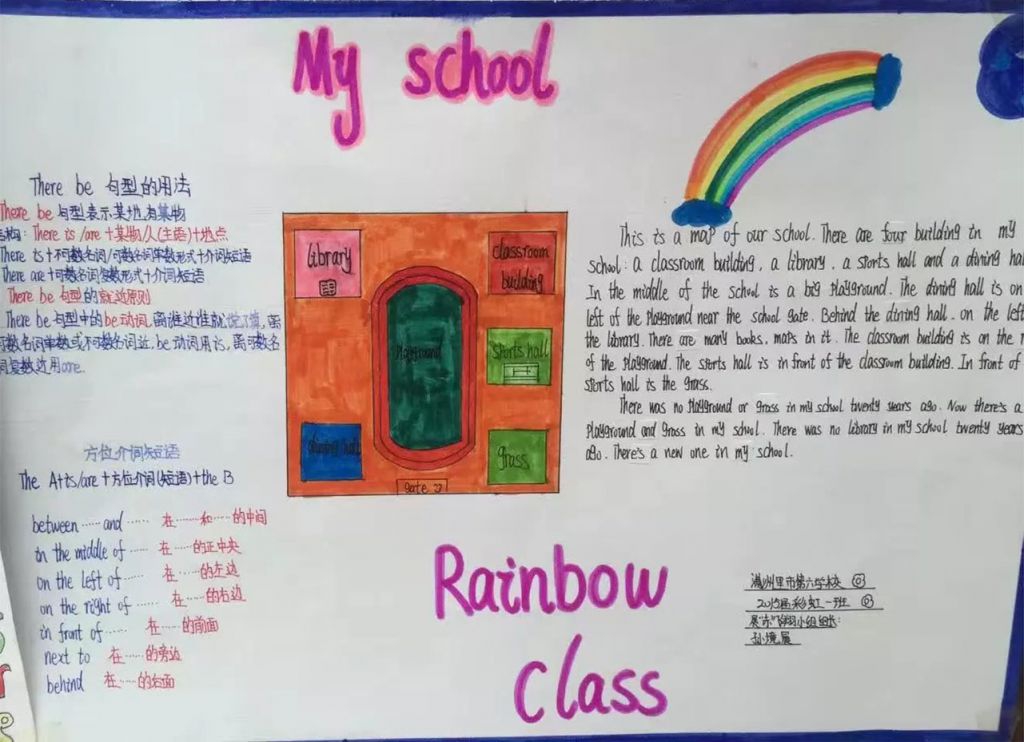 My school
There be 句型的用法
There be 句型表示某地有某物
结构: There is /are +某物/人(主语)+地点
There is +不可数名词/可数名词单数形式+介词短语
There are +可数名词复数形式+介词短语
There be 句型的就近原则
There be 句型中的be动词,离谁近谁就说了算,离
可数名词单数或不可数名词近, be动词用is, 离可数名
词复数近用are.
方位介词短语
The A+is/are +方位介词(短语)+the B
between ······ and ······ 在······和······的中间
in the middle of ······ 在······的正中央
on the left of ······ 在······的左边
on the right of ······ 在······的右边
in front of ······ 在······的前面
next to 在······的旁边
behind 在······的后面
library
classroom
building
Playground
sports hall
dining hall
grass
gate
This is a map of our school. There are four building in my
school: a classroom building, a library, a sports hall and a dining
In the middle of the school is a big playground. The dining hall is on
left of the playground near the school gate. Behind the dining hall. on the left
the library. There are many books, maps in it. The classroom building is on the
of the playground. The sports hall is in front of the classroom building. In front of
sports hall is the grass.
There was no playground or grass in my school twenty years ago. Now there's a
playground and grass in my school. There was no library in my school twenty years
ago. There's a new one in my school.
Rainbow
class
满洲里市第六学校
彩虹一班